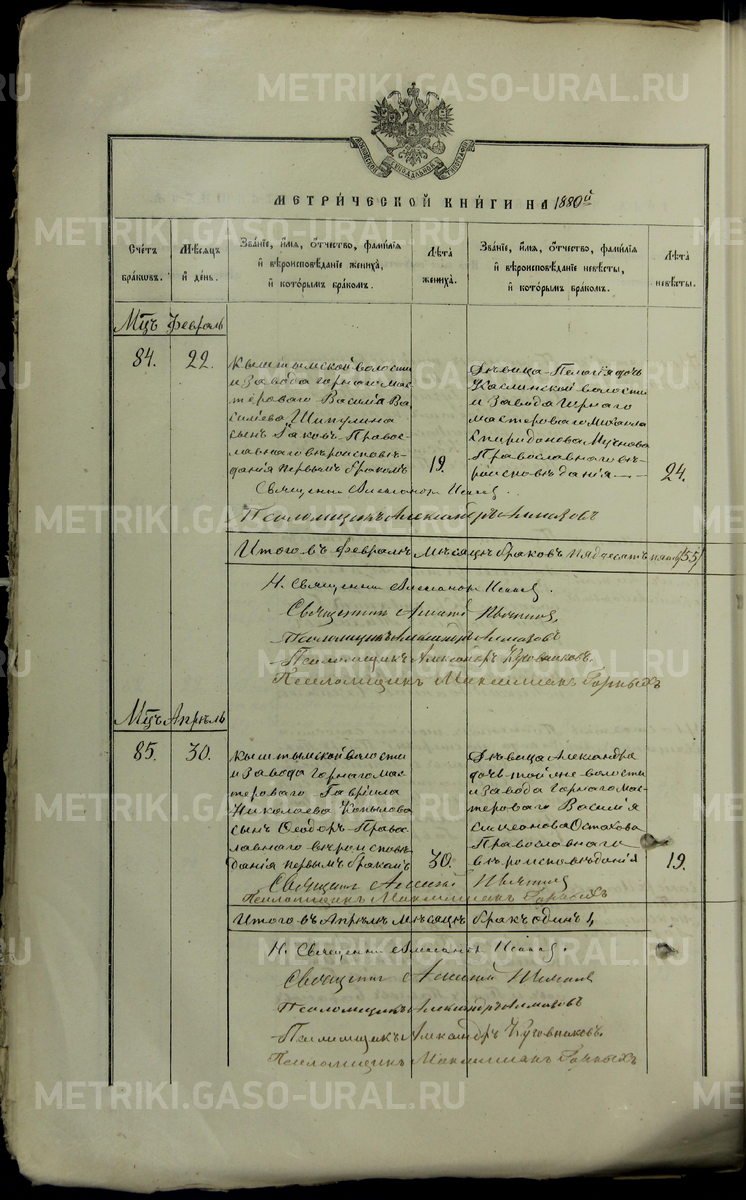 METRIKI.GASO-URAL.RU
МОСКОВСКОЙ СѴНОДАЛЬНОЙ ТИПОГРАФІИ
МЕТРИ́ЧЕСКОЙ КНИ́ГИ НА 1880й
Сче́тъ бра́ковъ.
Мѣ́сяцъ и҆ де́нь.
Зва́нїе, и҆́мя, ѻ҆́тчество, фами́лїя и҆ вѣроисповѣ́данїе жениха̀, и҆ кото́рымъ бра́комъ.
Лѣ́та жениха̀.
Зва́нїе, и҆́мя, ѻ҆́тчество, фами́лїя и҆ вѣроисповѣ́данїе невѣ́сты, и҆ кото́рымъ бра́комъ.
Лѣ́та невѣ́сты.
Мцъ Февраль
84.
22.
Кыштымской волости
и Завода Горнаго мас-
тероваго Василія Ва-
силіева Шипулина
сынъ Іаковъ Право-
славнаго вѣроисповѣ-
данія первымъ бракомъ
19.
Дѣвица Пелагія дочь
Каслинской волости
и Завода Горнаго
мастероваго Михаила
Спиридонова
Православнаго вѣ-
роисповѣданія
24.
Священникъ
Псаломщикъ Александръ Алмазовъ
Итого въ Февралѣ Мѣсяцѣ браковъ пядьесятъ пять (55)
Н. Священникъ
Священникъ
Псаломщикъ Александръ Алмазовъ
Псаломщикъ Александръ
Псаломщикъ Максимианъ Горныхъ
Мцъ Апрѣль
85.
30.
Кыштымской волости
и Завода Горнаго мас-
тероваго Гавріила
Николаева Копылова
сынъ Ѳеодоръ Право-
славнаго вѣроисповѣ-
данія первымъ бракомъ
30.
Дѣвица Александра
дочь той же волости
и Завода Горнаго мас-
тероваго Василія
Симеонова Остахова
Православнаго
вѣроисповѣданія
19.
Священникъ Алексій
Псаломщикъ Максимианъ Горныхъ
Итого въ Апрѣлѣ Мѣсяцѣ бракъ одинъ 1,
Н. Священникъ
Священникъ Алексій
Псаломщикъ Александръ Алмазовъ
Псаломщикъ Александръ
Псаломщикъ Максимианъ Горныхъ